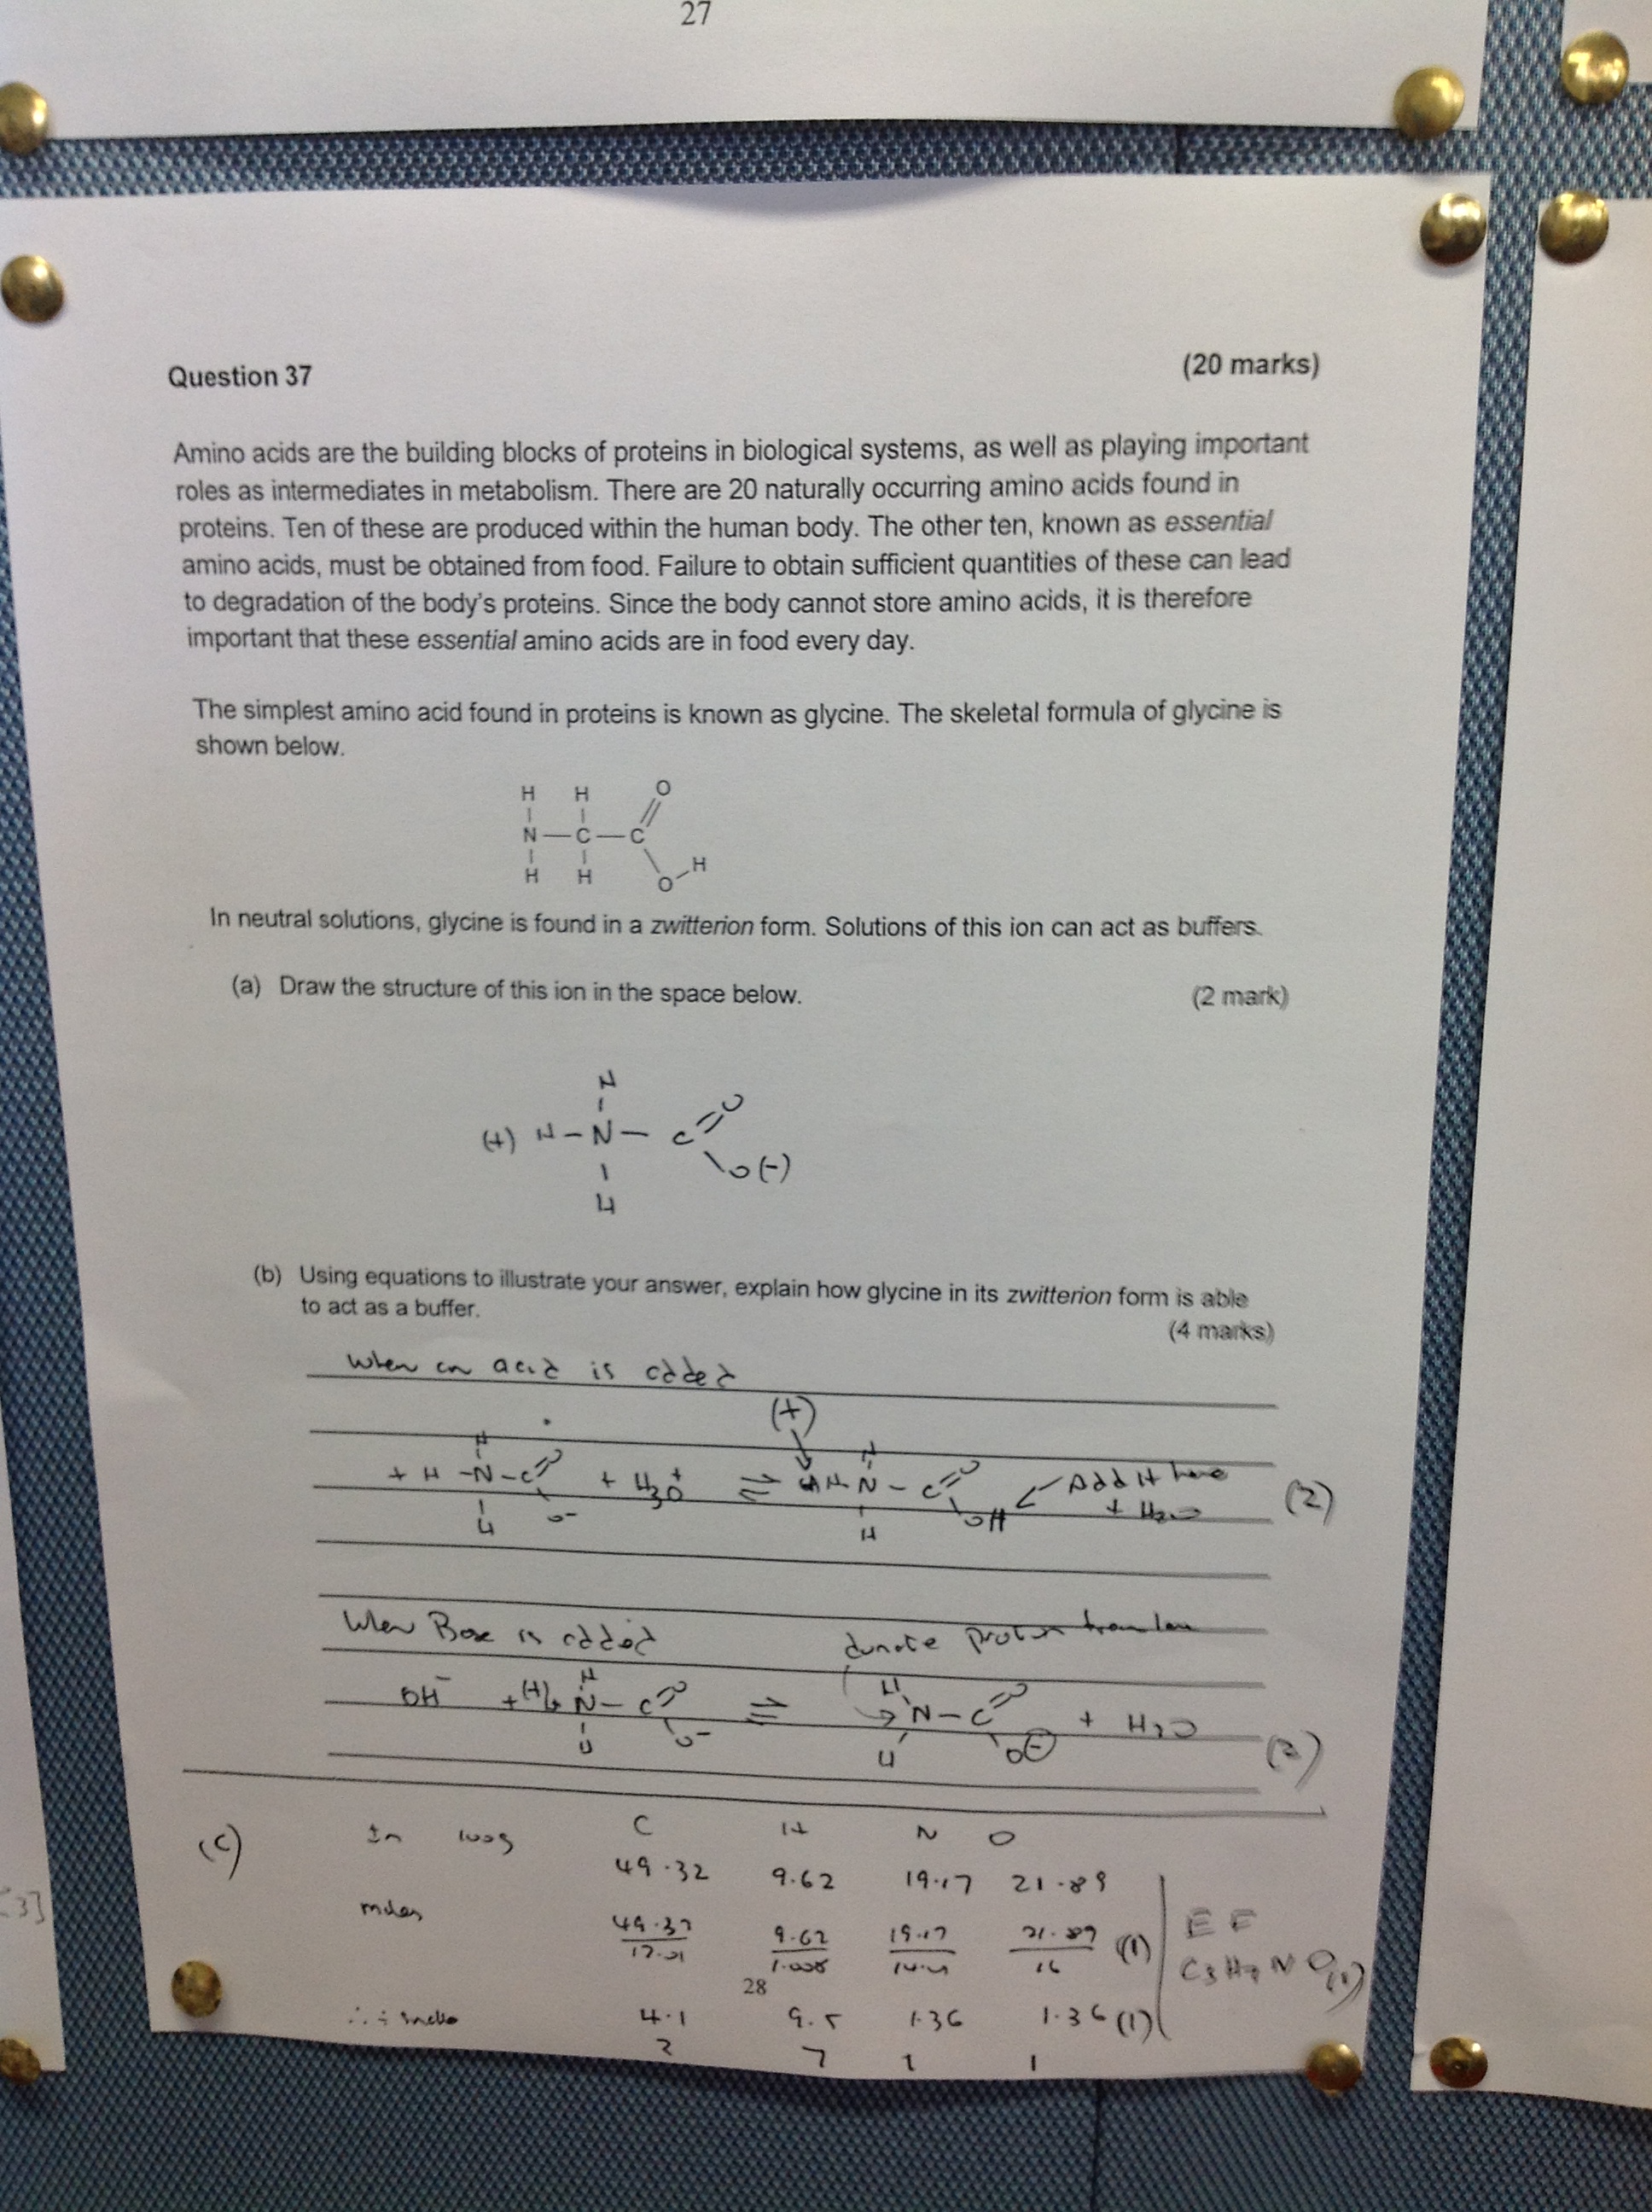 27
Question 37
(20 marks)
Amino acids are the building blocks of proteins in biological systems, as well as playing important
roles as intermediates in metabolism. There are 20 naturally occurring amino acids found in
proteins. Ten of these are produced within the human body. The other ten, known as essential
amino acids, must be obtained from food. Failure to obtain sufficient quantities of these can lead
to degradation of the body's proteins. Since the body cannot store amino acids, it is therefore
important that these essential amino acids are in food every day.
The simplest amino acid found in proteins is known as glycine. The skeletal formula of glycine is
shown below.
H H O
N — C — C
H H O H
In neutral solutions, glycine is found in a zwitterion form. Solutions of this ion can act as buffers.
(a) Draw the structure of this ion in the space below.
(2 mark)
H
(+) H – N – C = O
O (-)
H
(b) Using equations to illustrate your answer, explain how glycine in its zwitterion form is able
to act as a buffer.
(4 marks)
When an acid is added
(+)
H O H O
+ H – N – C + H3O+ ⇌ H N – C Add H here
H O- H OH + H2O
(2)
When Base is added
donate proton from
H O H O
OH- + (+) N – C ⇌ N – C + H2O
H O- H O-
(2)
(c) In 100g C H N O
49.32 9.62 19.17 21.89
moles
49.32 9.62 19.17 21.89 (1)
12.01 1.008 14.01 16
EF
C3H7NO (1)
28
4.1 9.5 1.36 1.36 (1)
3 7 1 1
[3]